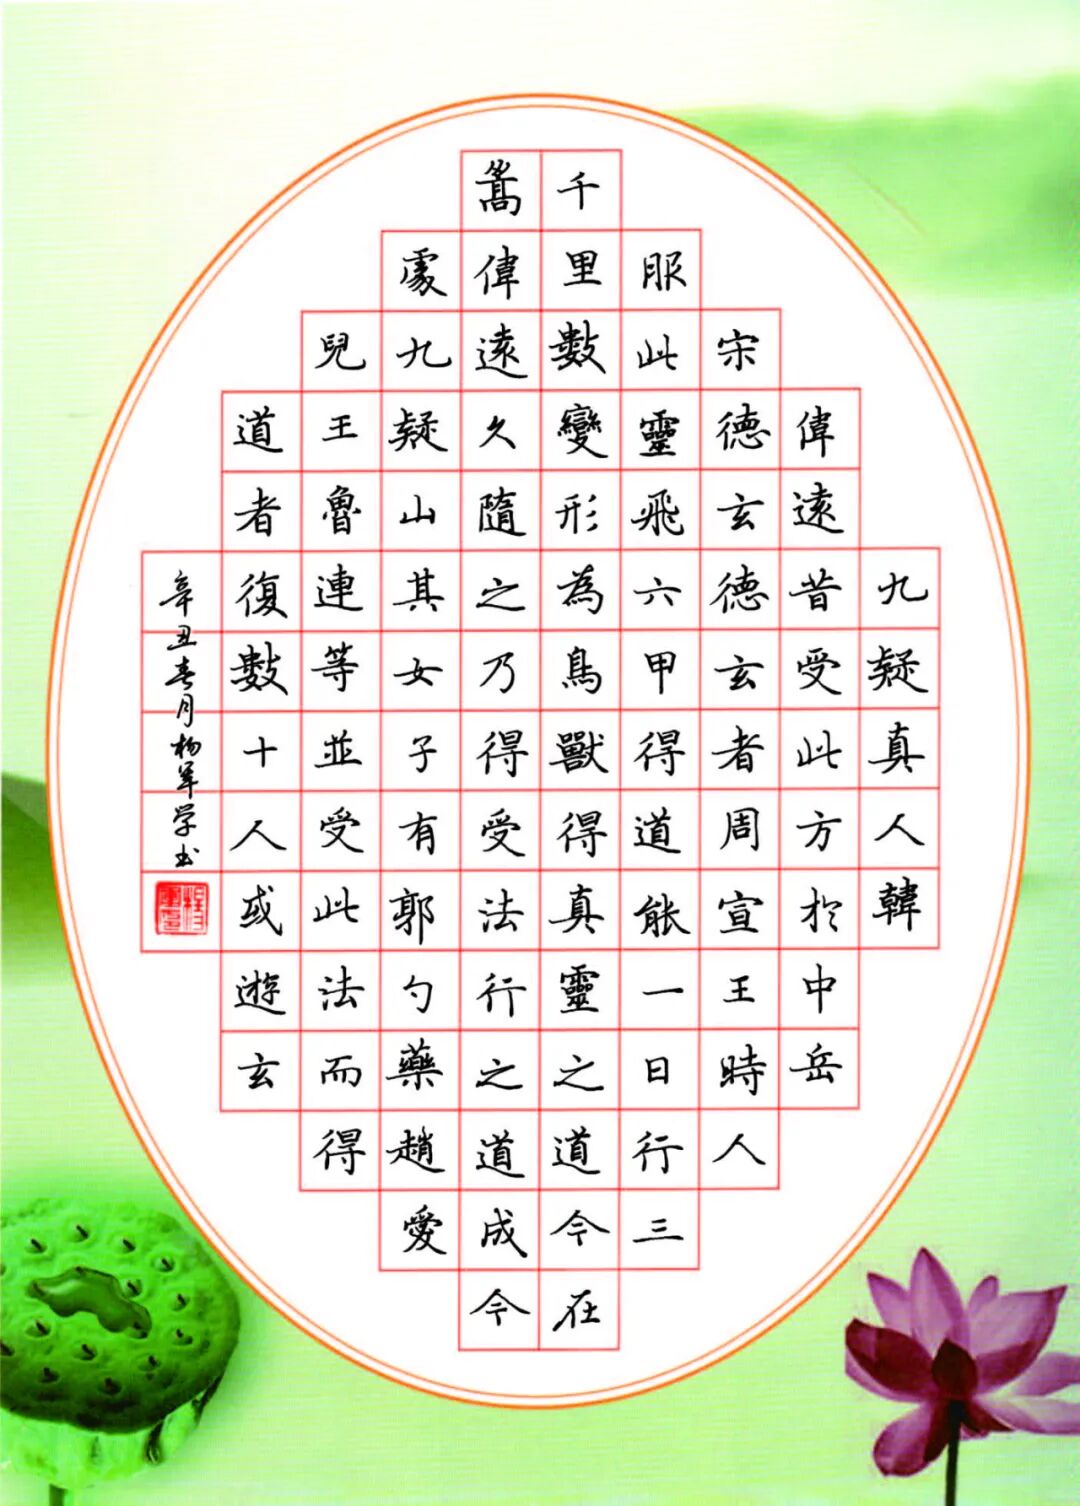 九疑真人韓
偉遠昔受此方於中岳
宋德玄德玄者周宣王時人
服此靈飛六甲得道能一日行三
千里數變形為鳥獸得真靈之道今在
篙偉遠久隨之乃得受法行之道成今
處九疑山其女子有郭勺藥趙愛
兒王魯連等並受此法而得
道者復數十人或遊玄
辛丑春月杨军学书